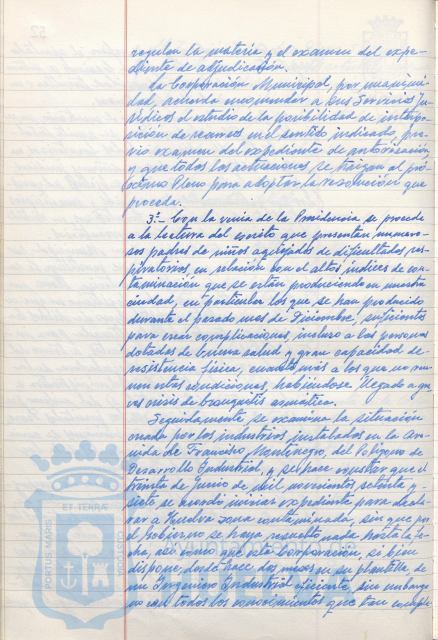 regulan la materia y el examen del expe-
diente de adjudicación.
La Corporación Municipal, por unanimi-
dad, acuerda encomendar a sus Servicios Ju-
rídicos el estudio de la posibilidad de interpo-
sición de recursos en el sentido indicado, pre-
vio examen del expediente de autorización,
y que todas las actuaciones se traigan al pró-
ximo Pleno para adoptar la resolución que
proceda.
3º.- Con la venia de la Presidencia se procede
a la lectura del escrito que presentan numero-
sos padres de niños aquejados de dificultades res-
piratorias, en relación con el altos índices de con-
taminación que se están produciendo en nuestra
ciudad, en particular los que se han producido
durante el pasado mes de Diciembre, suficientes
para crear complicaciones, incluso a las personas
dotadas de buena salud y gran capacidad de
resistencia física, cuanto más a los que no reu-
nen estas condiciones, habiéndose llegado a gra-
ves crisis de bronquitis asmática.
Seguidamente se examina la situación
creada por las industrias instaladas en la Ave-
nida de Francisco Montenegro, del Polígono de
Desarrollo Industrial, y se hace constar que el
treinta de Junio de mil novecientos setenta y
siete se acordó iniciar expediente para decla-
rar a Huelva zona contaminada, sin que por
el Gobierno se haya resuelto nada hasta la fe-
cha, así como que esta Corporación, se bien
dispone, desde hace dos meses en su plantilla de
un Ingeniero Industrial eficiente, sin embargo
no con todos los conocimientos que tan comple-
PORTUS MARIS ET TERRAE CUSTODIA